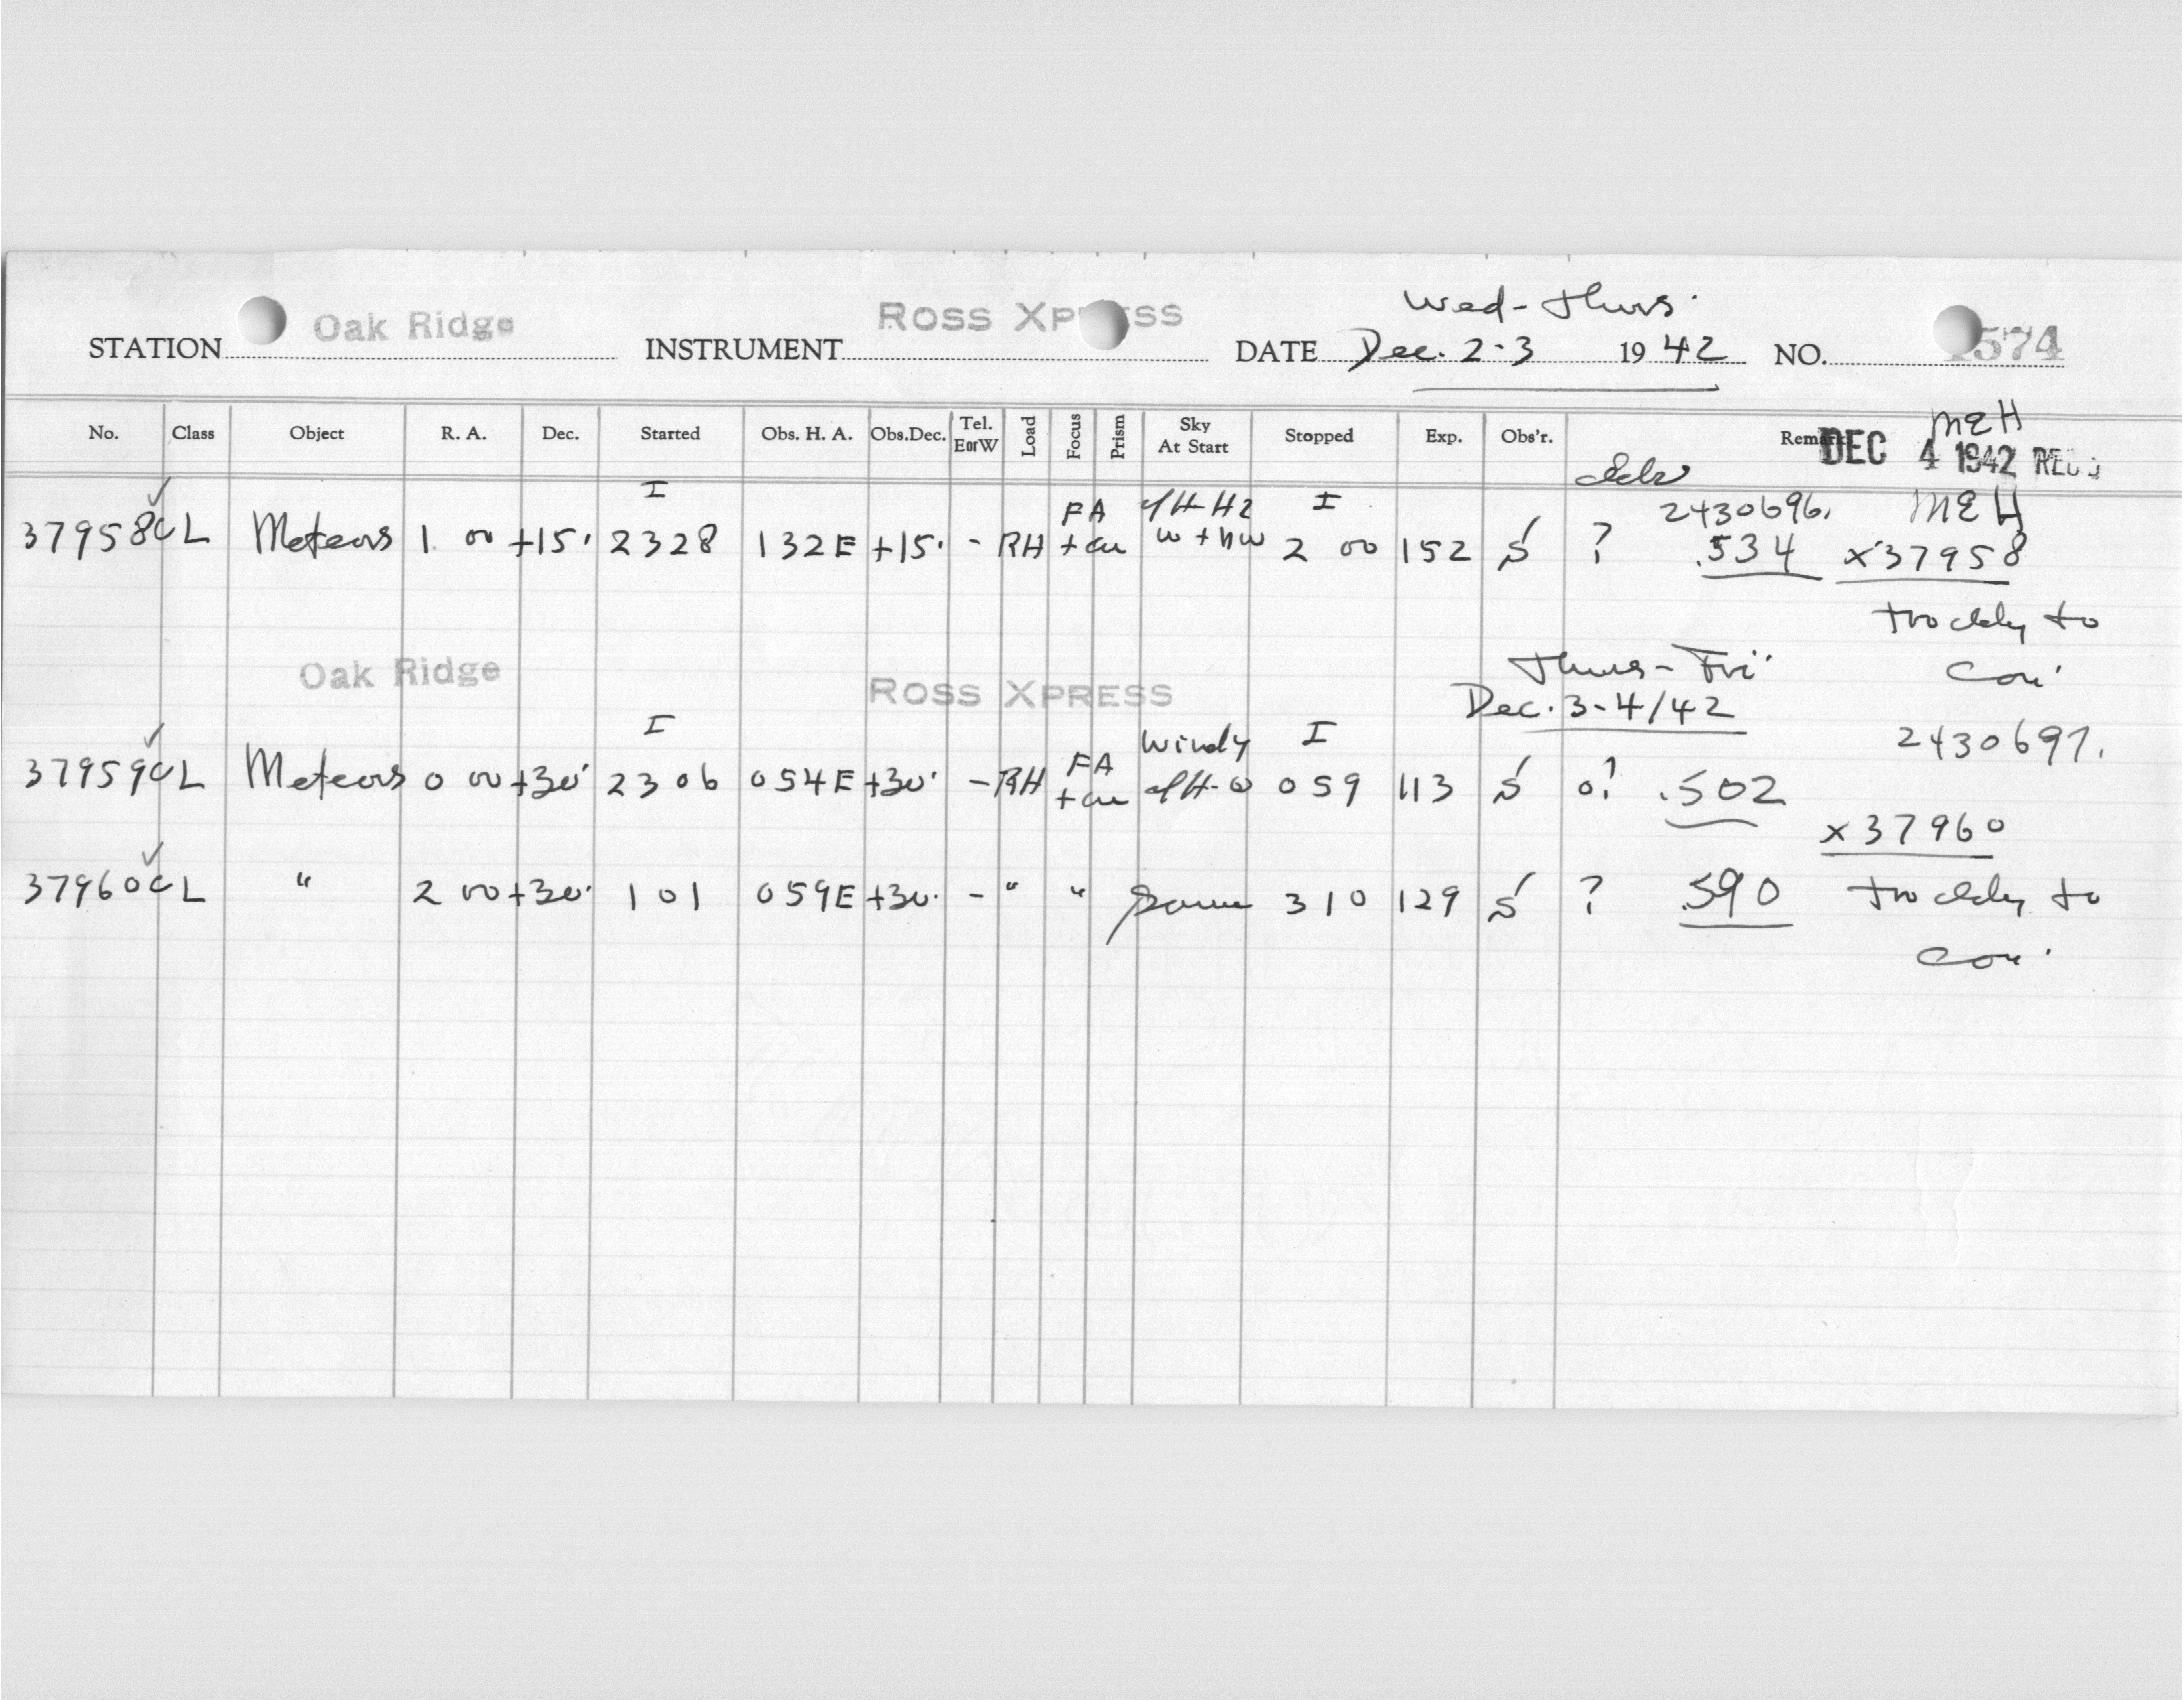 Wed-Thurs.
STATION Oak Ridge INSTRUMENT ROSS XPRESS DATE Dec. 2-3 1942 NO. 574
No. Class Object R. A. Dec. Started Obs. H. A. Obs.Dec. Tel. E or W Load Focus Prism Sky At Start Stopped Exp. Obs'r. Remarks
MEH
DEC 4 1942 REC'D
I FA I 2430696. MEH
37958 C L Meteors 1 00 +15° 2328 132E +15° - RH w + nw 2 00 152 S ? .534 x37958
to
Oak Ridge ROSS XPRESS Thurs-Fri
Dec. 3-4/42
I FA Windy I 2430697.
37959 C L Meteors 0 00 +30° 2306 054E +30° - RH 059 113 S 0? .502
x37960
37960 C L " 2 00 +30° 101 059E +30° - " " Same 310 129 S ? .590
to